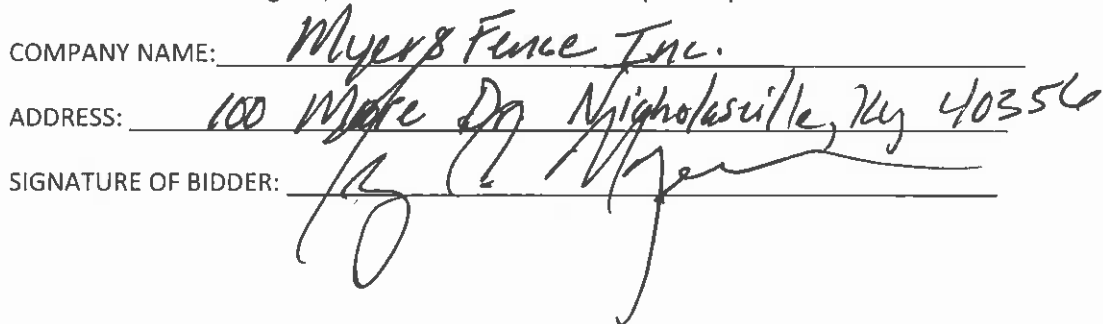 COMPANY NAME: Myers Fence Inc.
ADDRESS: 100 Dr Nicholasville, Ky 40356
SIGNATURE OF BIDDER: